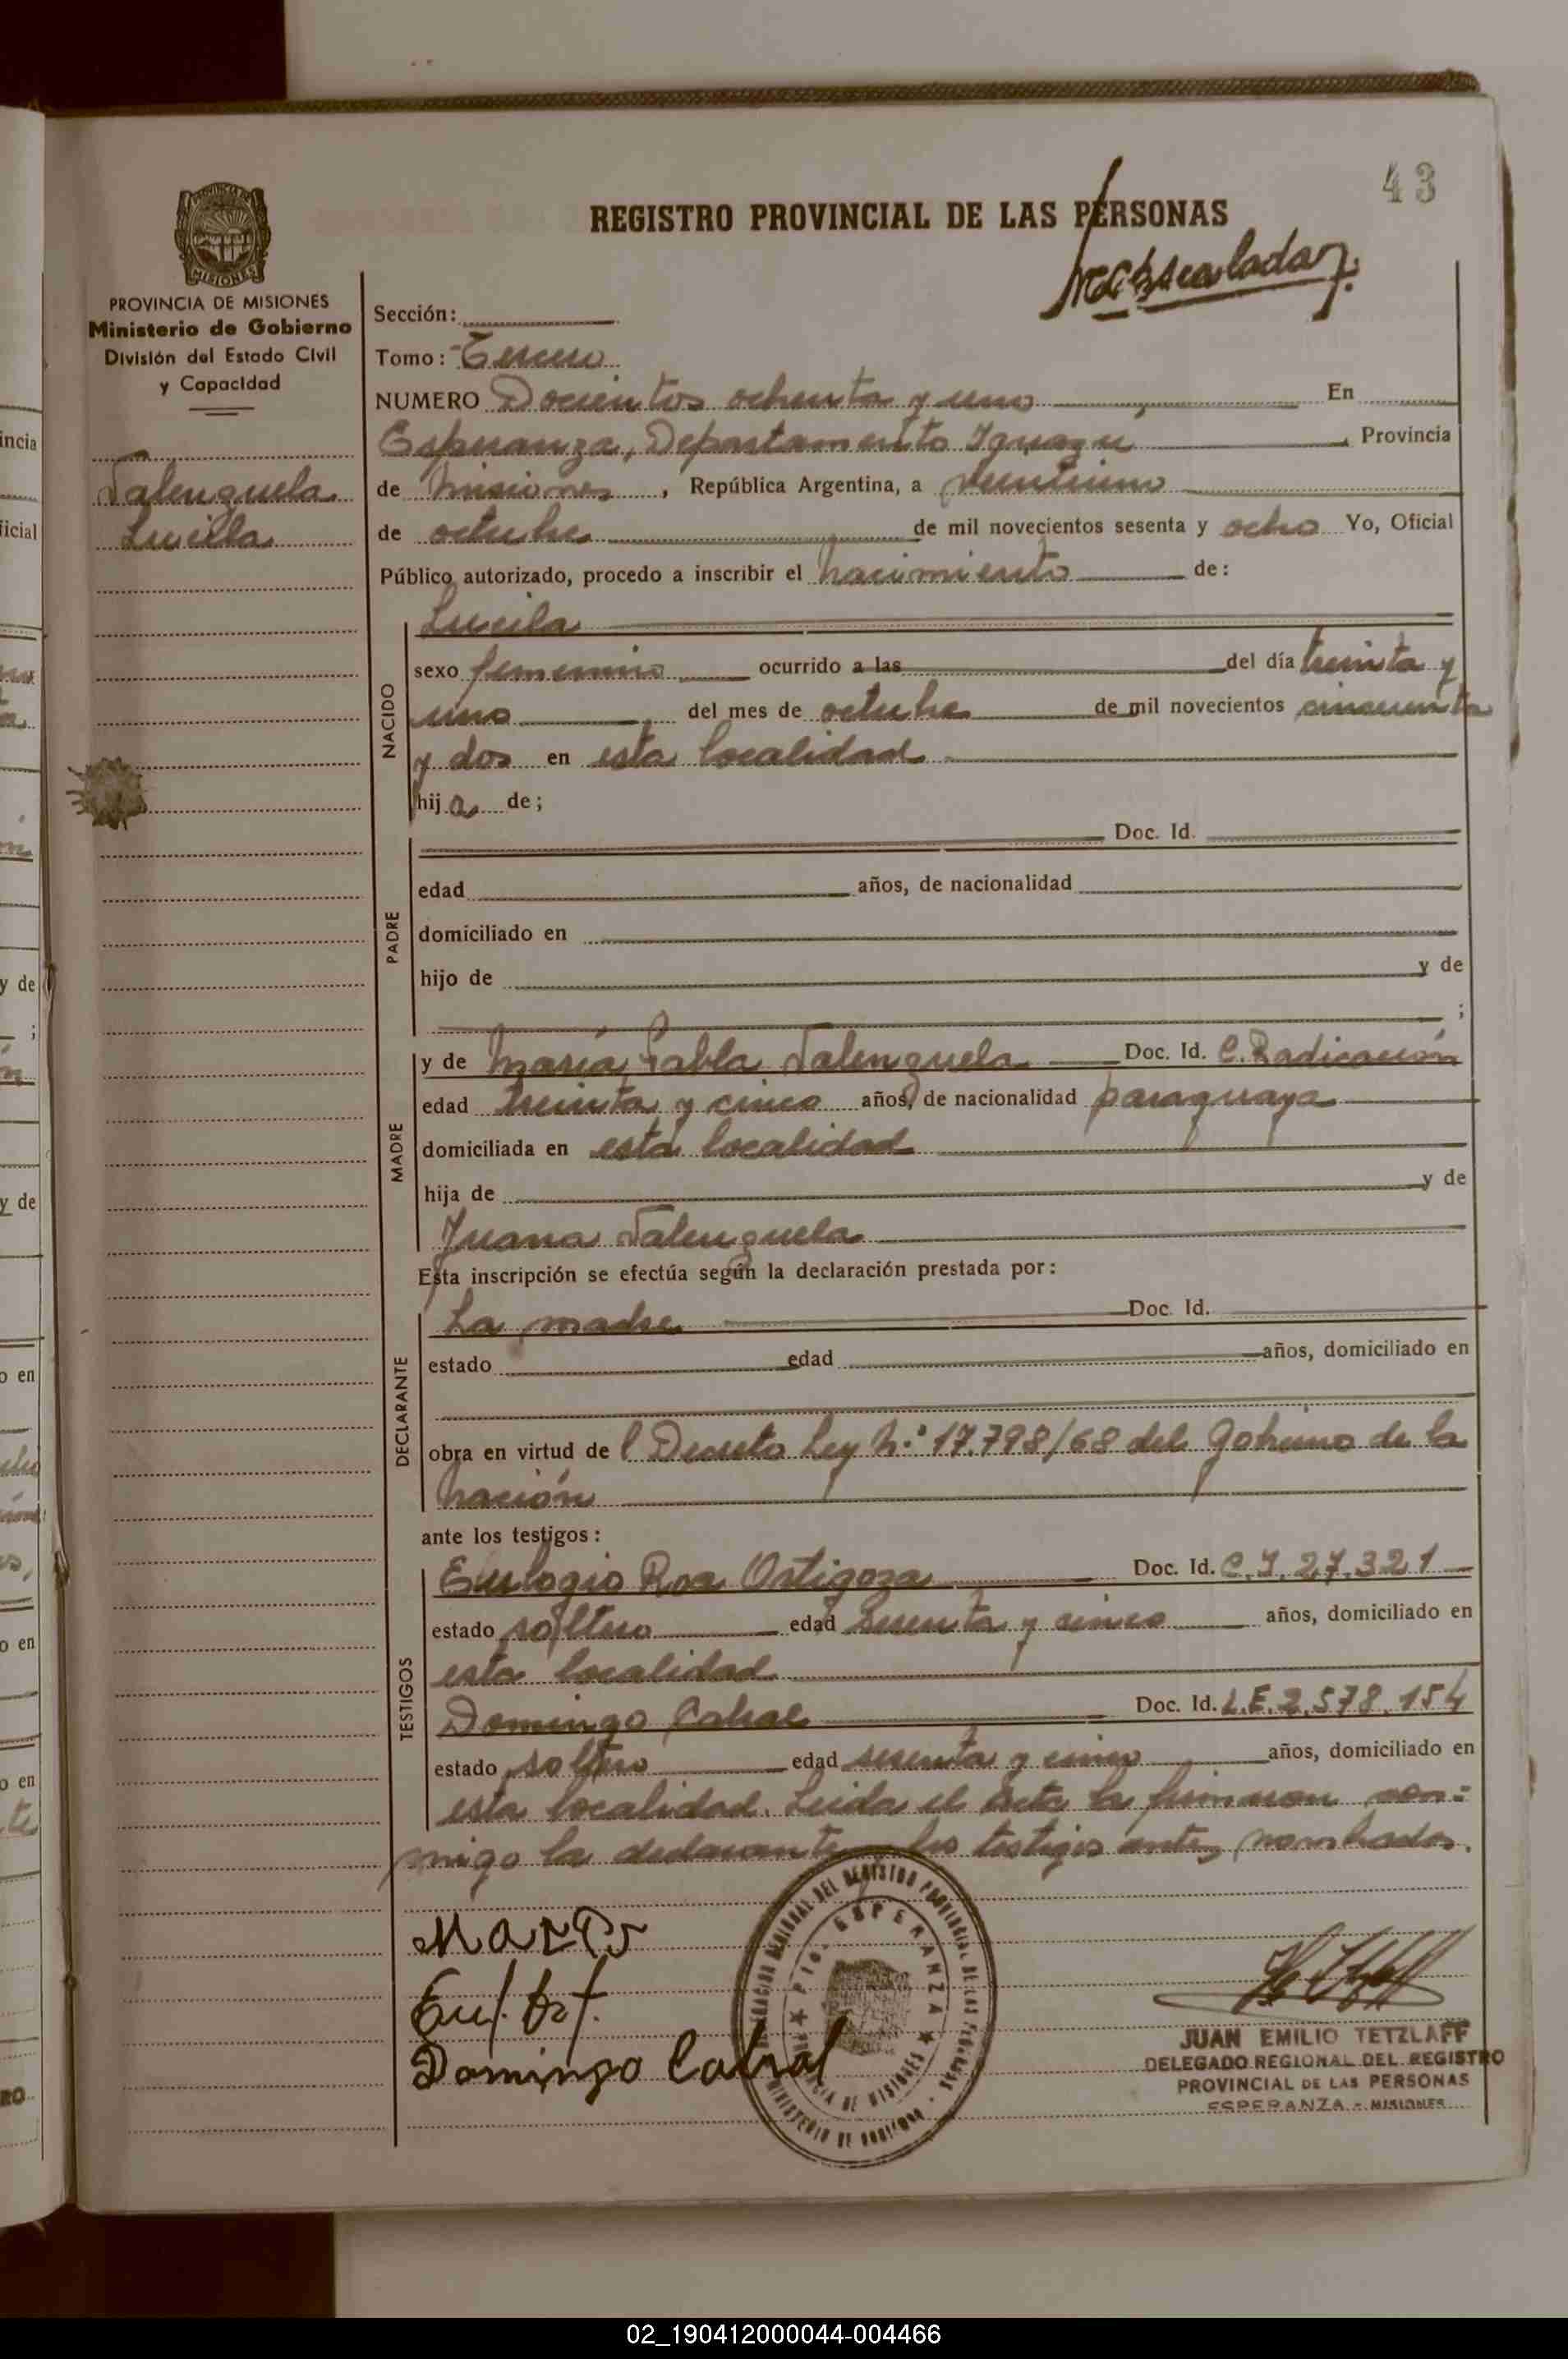 43
REGISTRO PROVINCIAL DE LAS PERSONAS
PROVINCIA DE MISIONES
Ministerio de Gobierno
División del Estado Civil
y Capacidad
Valenzuela
Lucila
Sección:
Tomo: Tercero
NUMERO Docientos ochenta y uno En
Esperanza, Departamento Iguazú, Provincia
de Misiones, República Argentina, a veintiuno
de octubre de mil novecientos sesenta y ocho Yo, Oficial
Público autorizado, procedo a inscribir el nacimiento de:
NACIDO
Lucila
sexo femenino ocurrido a las del día treinta y
uno del mes de octubre de mil novecientos cincuenta
y dos en esta localidad
hija de;
PADRE
Doc. Id.
edad años, de nacionalidad
domiciliado en
hijo de y de
;
MADRE
y de María Pabla Valenzuela Doc. Id. C. Radicación
edad treinta y cinco años, de nacionalidad paraguaya
domiciliada en esta localidad
hija de y de
Juana Valenzuela
Esta inscripción se efectúa según la declaración prestada por:
DECLARANTE
La madre Doc. Id.
estado edad años, domiciliado en
obra en virtud de l Decreto Ley N.° 17.798/68 del Gobierno de la
Nación
ante los testigos:
TESTIGOS
Eulogio Roa Ortigoza Doc. Id. C.I. 27.321
estado soltero edad sesenta y cinco años, domiciliado en
esta localidad
Domingo Cabral Doc. Id. L.E. 2.578.154
estado soltero edad sesenta y cinco años, domiciliado en
esta localidad. Leida el Acta la firmaron con=
migo la declarante y los testigos antes nombrados.
Domingo Cabral
DELEGACION REGIONAL DEL REGISTRO PROVINCIAL DE LAS PERSONAS
PTO. ESPERANZA
PROVINCIA DE MISIONES
MINISTERIO DE GOBIERNO
JUAN EMILIO TETZLAFF
DELEGADO REGIONAL DEL REGISTRO
PROVINCIAL DE LAS PERSONAS
ESPERANZA - MISIONES
02_190412000044-004466